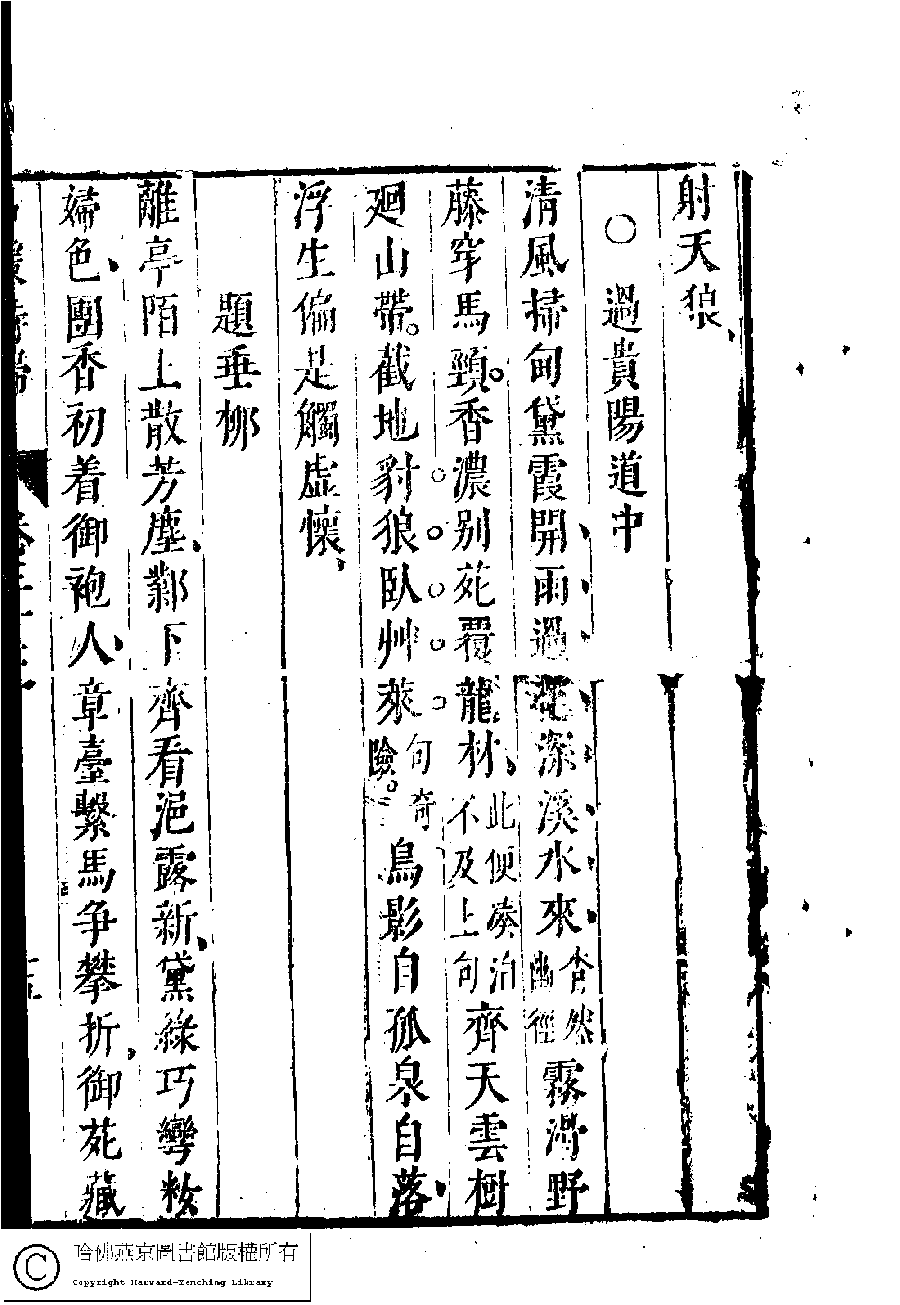 射天狼、
○　過貴陽道中
清風掃甸黛霞開、雨過花深溪水來杳然幽徑霧滑野
藤穿馬頸。香濃別苑覆龍材、此便湊泊不及上句齊天雲樹
廻山帶。截地豺狼臥艸萊句奇險。鳥影自孤泉自落、
浮生偏是觸虛懷、
題垂栁
離亭陌上散芳塵、鄴下齊看浥露新、黛綠巧彎籹
婦色、團香初着御袍人、章臺繫馬争攀折、御苑藏
媛詩歸
哈佛燕京圖書館版權所有
Copyright Harvard-Yenching Library